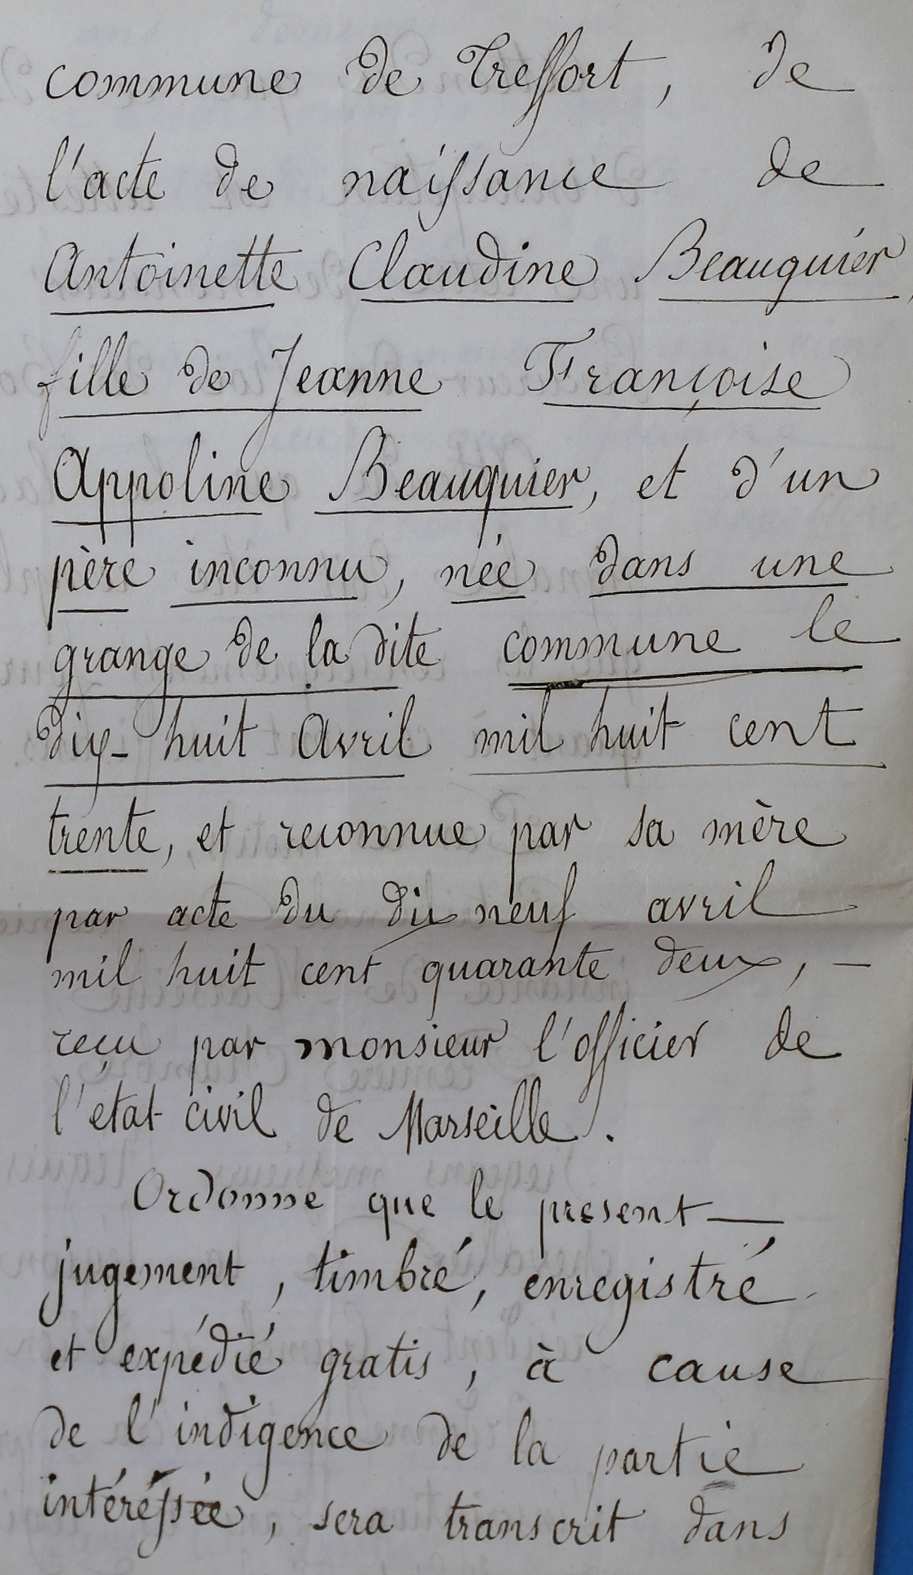 commune de Treffort, de
l'acte de naissance de
Antoinette Claudine Beauquier,
fille de Jeanne Françoise
Appoline Beauquier, et d'un
père inconnu, née dans une
grange de la dite commune le
dix-huit avril mil huit cent
trente, et reconnue par sa mère
par acte du dix neuf avril
mil huit cent quarante deux, —
reçu par monsieur l'officier de
l'état civil de Marseille.
Ordonne que le present —
jugement, timbré, enregistré
et expédié gratis, à cause
de l'indigence de la partie
intéréssée, sera transcrit dans